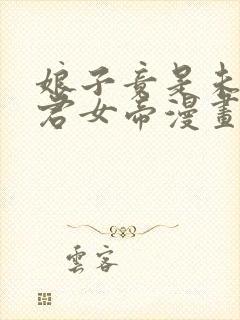 娘子竟是未
君女帝漫畫
雲客